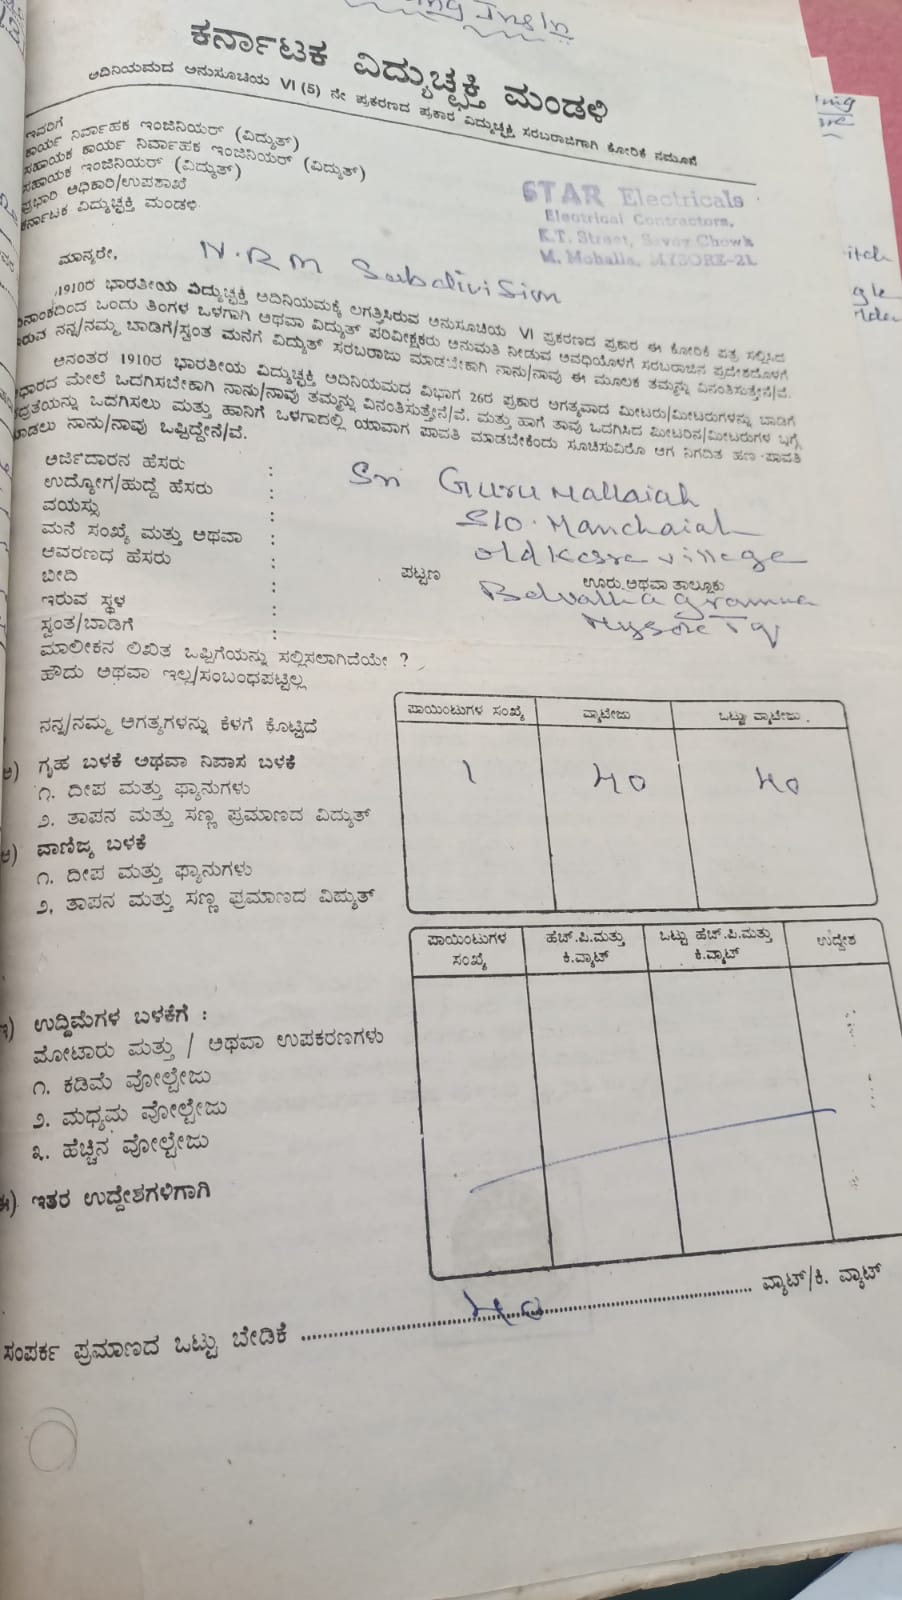 ಕರ್ನಾಟಕ ವಿದ್ಯುಚ್ಛಕ್ತಿ ಮಂಡಳಿ
ಅದಿನಿಯಮದ ಅನುಸೂಚಿಯ VI (5) ನೇ ಪ್ರಕರಣದ ಪ್ರಕಾರ ವಿದ್ಯುಚ್ಛಕ್ತಿ ಸರಬರಾಜಿಗಾಗಿ ಕೋರಿಕೆ ನಮೂನೆ
ಇವರಿಗೆ
ಕಾರ್ಯ ನಿರ್ವಾಹಕ ಇಂಜಿನಿಯರ್ (ವಿದ್ಯುತ್)
ಸಹಾಯಕ ಕಾರ್ಯ ನಿರ್ವಾಹಕ ಇಂಜಿನಿಯರ್ (ವಿದ್ಯುತ್)
ಸಹಾಯಕ ಇಂಜಿನಿಯರ್ (ವಿದ್ಯುತ್)
ಪ್ರಭಾರಿ ಅಧಿಕಾರಿ/ಉಪಶಾಖೆ
ಕರ್ನಾಟಕ ವಿದ್ಯುಚ್ಛಕ್ತಿ ಮಂಡಳಿ
STAR Electricals
Electrical Contractors,
K.T. Street, Savoy Chowk
M. Mohalla, MYSORE-21
ಮಾನ್ಯರೇ,
N.R.M Subdivision
1910ರ ಭಾರತೀಯ ವಿದ್ಯುಚ್ಛಕ್ತಿ ಅದಿನಿಯಮಕ್ಕೆ ಲಗತ್ತಿಸಿರುವ ಅನುಸೂಚಿಯ VI ಪ್ರಕರಣದ ಪ್ರಕಾರ ಈ ಕೋರಿಕೆ ಪತ್ರ ಸಲ್ಲಿಸಿದ
ದಿನಾಂಕದಿಂದ ಒಂದು ತಿಂಗಳ ಒಳಗಾಗಿ ಅಥವಾ ವಿದ್ಯುತ್ ಪರಿವೀಕ್ಷಕರು ಅನುಮತಿ ನೀಡುವ ಅವಧಿಯೊಳಗೆ ಸರಬರಾಜಿನ ಪ್ರದೇಶದೊಳಗೆ
ಇರುವ ನನ್ನ/ನಮ್ಮ ಬಾಡಿಗೆ/ಸ್ವಂತ ಮನೆಗೆ ವಿದ್ಯುತ್ ಸರಬರಾಜು ಮಾಡಬೇಕಾಗಿ ನಾನು/ನಾವು ಈ ಮೂಲಕ ತಮ್ಮನ್ನು ವಿನಂತಿಸುತ್ತೇನೆ/ವೆ.
ಅನಂತರ 1910ರ ಭಾರತೀಯ ವಿದ್ಯುಚ್ಛಕ್ತಿ ಅದಿನಿಯಮದ ವಿಭಾಗ 26ರ ಪ್ರಕಾರ ಅಗತ್ಯವಾದ ಮೀಟರು/ಮೀಟರುಗಳನ್ನು ಬಾಡಿಗೆ
ಆಧಾರದ ಮೇಲೆ ಒದಗಿಸಬೇಕಾಗಿ ನಾನು/ನಾವು ತಮ್ಮನ್ನು ವಿನಂತಿಸುತ್ತೇನೆ/ವೆ. ಮತ್ತು ಹಾಗೆ ತಾವು ಒದಗಿಸಿದ ಮೀಟರಿನ/ಮೀಟರುಗಳ ಬಗ್ಗೆ
ಭದ್ರತೆಯನ್ನು ಒದಗಿಸಲು ಮತ್ತು ಹಾನಿಗೆ ಒಳಗಾದಲ್ಲಿ ಯಾವಾಗ ಪಾವತಿ ಮಾಡಬೇಕೆಂದು ಸೂಚಿಸುವಿರೊ ಆಗ ನಿಗದಿತ ಹಣ ಪಾವತಿ
ಮಾಡಲು ನಾನು/ನಾವು ಒಪ್ಪಿದ್ದೇನೆ/ವೆ.
ಅರ್ಜಿದಾರನ ಹೆಸರು : Sri Guru Mallaiah
ಉದ್ಯೋಗ/ಹುದ್ದೆ ಹೆಸರು :
ವಯಸ್ಸು : S/o. Manchaiah
ಮನೆ ಸಂಖ್ಯೆ ಮತ್ತು ಅಥವಾ :
ಆವರಣದ ಹೆಸರು : old Kesre village
ಬೀದಿ : ಪಟ್ಟಣ ಊರು ಅಥವಾ ತಾಲ್ಲೂಕು
ಇರುವ ಸ್ಥಳ : Belvatha grama
ಸ್ವಂತ/ಬಾಡಿಗೆ : Mysore Tq
ಮಾಲೀಕನ ಲಿಖಿತ ಒಪ್ಪಿಗೆಯನ್ನು ಸಲ್ಲಿಸಲಾಗಿದೆಯೇ ?
ಹೌದು ಅಥವಾ ಇಲ್ಲ/ಸಂಬಂಧಪಟ್ಟಿಲ್ಲ
ನನ್ನ/ನಮ್ಮ ಅಗತ್ಯಗಳನ್ನು ಕೆಳಗೆ ಕೊಟ್ಟಿದೆ
ಪಾಯಿಂಟುಗಳ ಸಂಖ್ಯೆ ವ್ಯಾಟೇಜು ಒಟ್ಟು ವ್ಯಾಟೇಜು
ಅ) ಗೃಹ ಬಳಕೆ ಅಥವಾ ನಿವಾಸ ಬಳಕೆ
1 40 40
೧. ದೀಪ ಮತ್ತು ಫ್ಯಾನುಗಳು
೨. ತಾಪನ ಮತ್ತು ಸಣ್ಣ ಪ್ರಮಾಣದ ವಿದ್ಯುತ್
ಆ) ವಾಣಿಜ್ಯ ಬಳಕೆ
೧. ದೀಪ ಮತ್ತು ಫ್ಯಾನುಗಳು
೨. ತಾಪನ ಮತ್ತು ಸಣ್ಣ ಪ್ರಮಾಣದ ವಿದ್ಯುತ್
ಪಾಯಿಂಟುಗಳ ಸಂಖ್ಯೆ ಹೆಚ್.ಪಿ.ಮತ್ತು ಕಿ.ವ್ಯಾಟ್ ಒಟ್ಟು ಹೆಚ್.ಪಿ.ಮತ್ತು ಕಿ.ವ್ಯಾಟ್ ಉದ್ದೇಶ
ಇ) ಉದ್ದಿಮೆಗಳ ಬಳಕೆಗೆ :
ಮೋಟಾರು ಮತ್ತು / ಅಥವಾ ಉಪಕರಣಗಳು
೧. ಕಡಿಮೆ ವೋಲ್ಟೇಜು
೨. ಮಧ್ಯಮ ವೋಲ್ಟೇಜು
೩. ಹೆಚ್ಚಿನ ವೋಲ್ಟೇಜು
ಈ) ಇತರ ಉದ್ದೇಶಗಳಿಗಾಗಿ
ಸಂಪರ್ಕ ಪ್ರಮಾಣದ ಒಟ್ಟು ಬೇಡಿಕೆ ........ 40 ........ ವ್ಯಾಟ್/ಕಿ. ವ್ಯಾಟ್